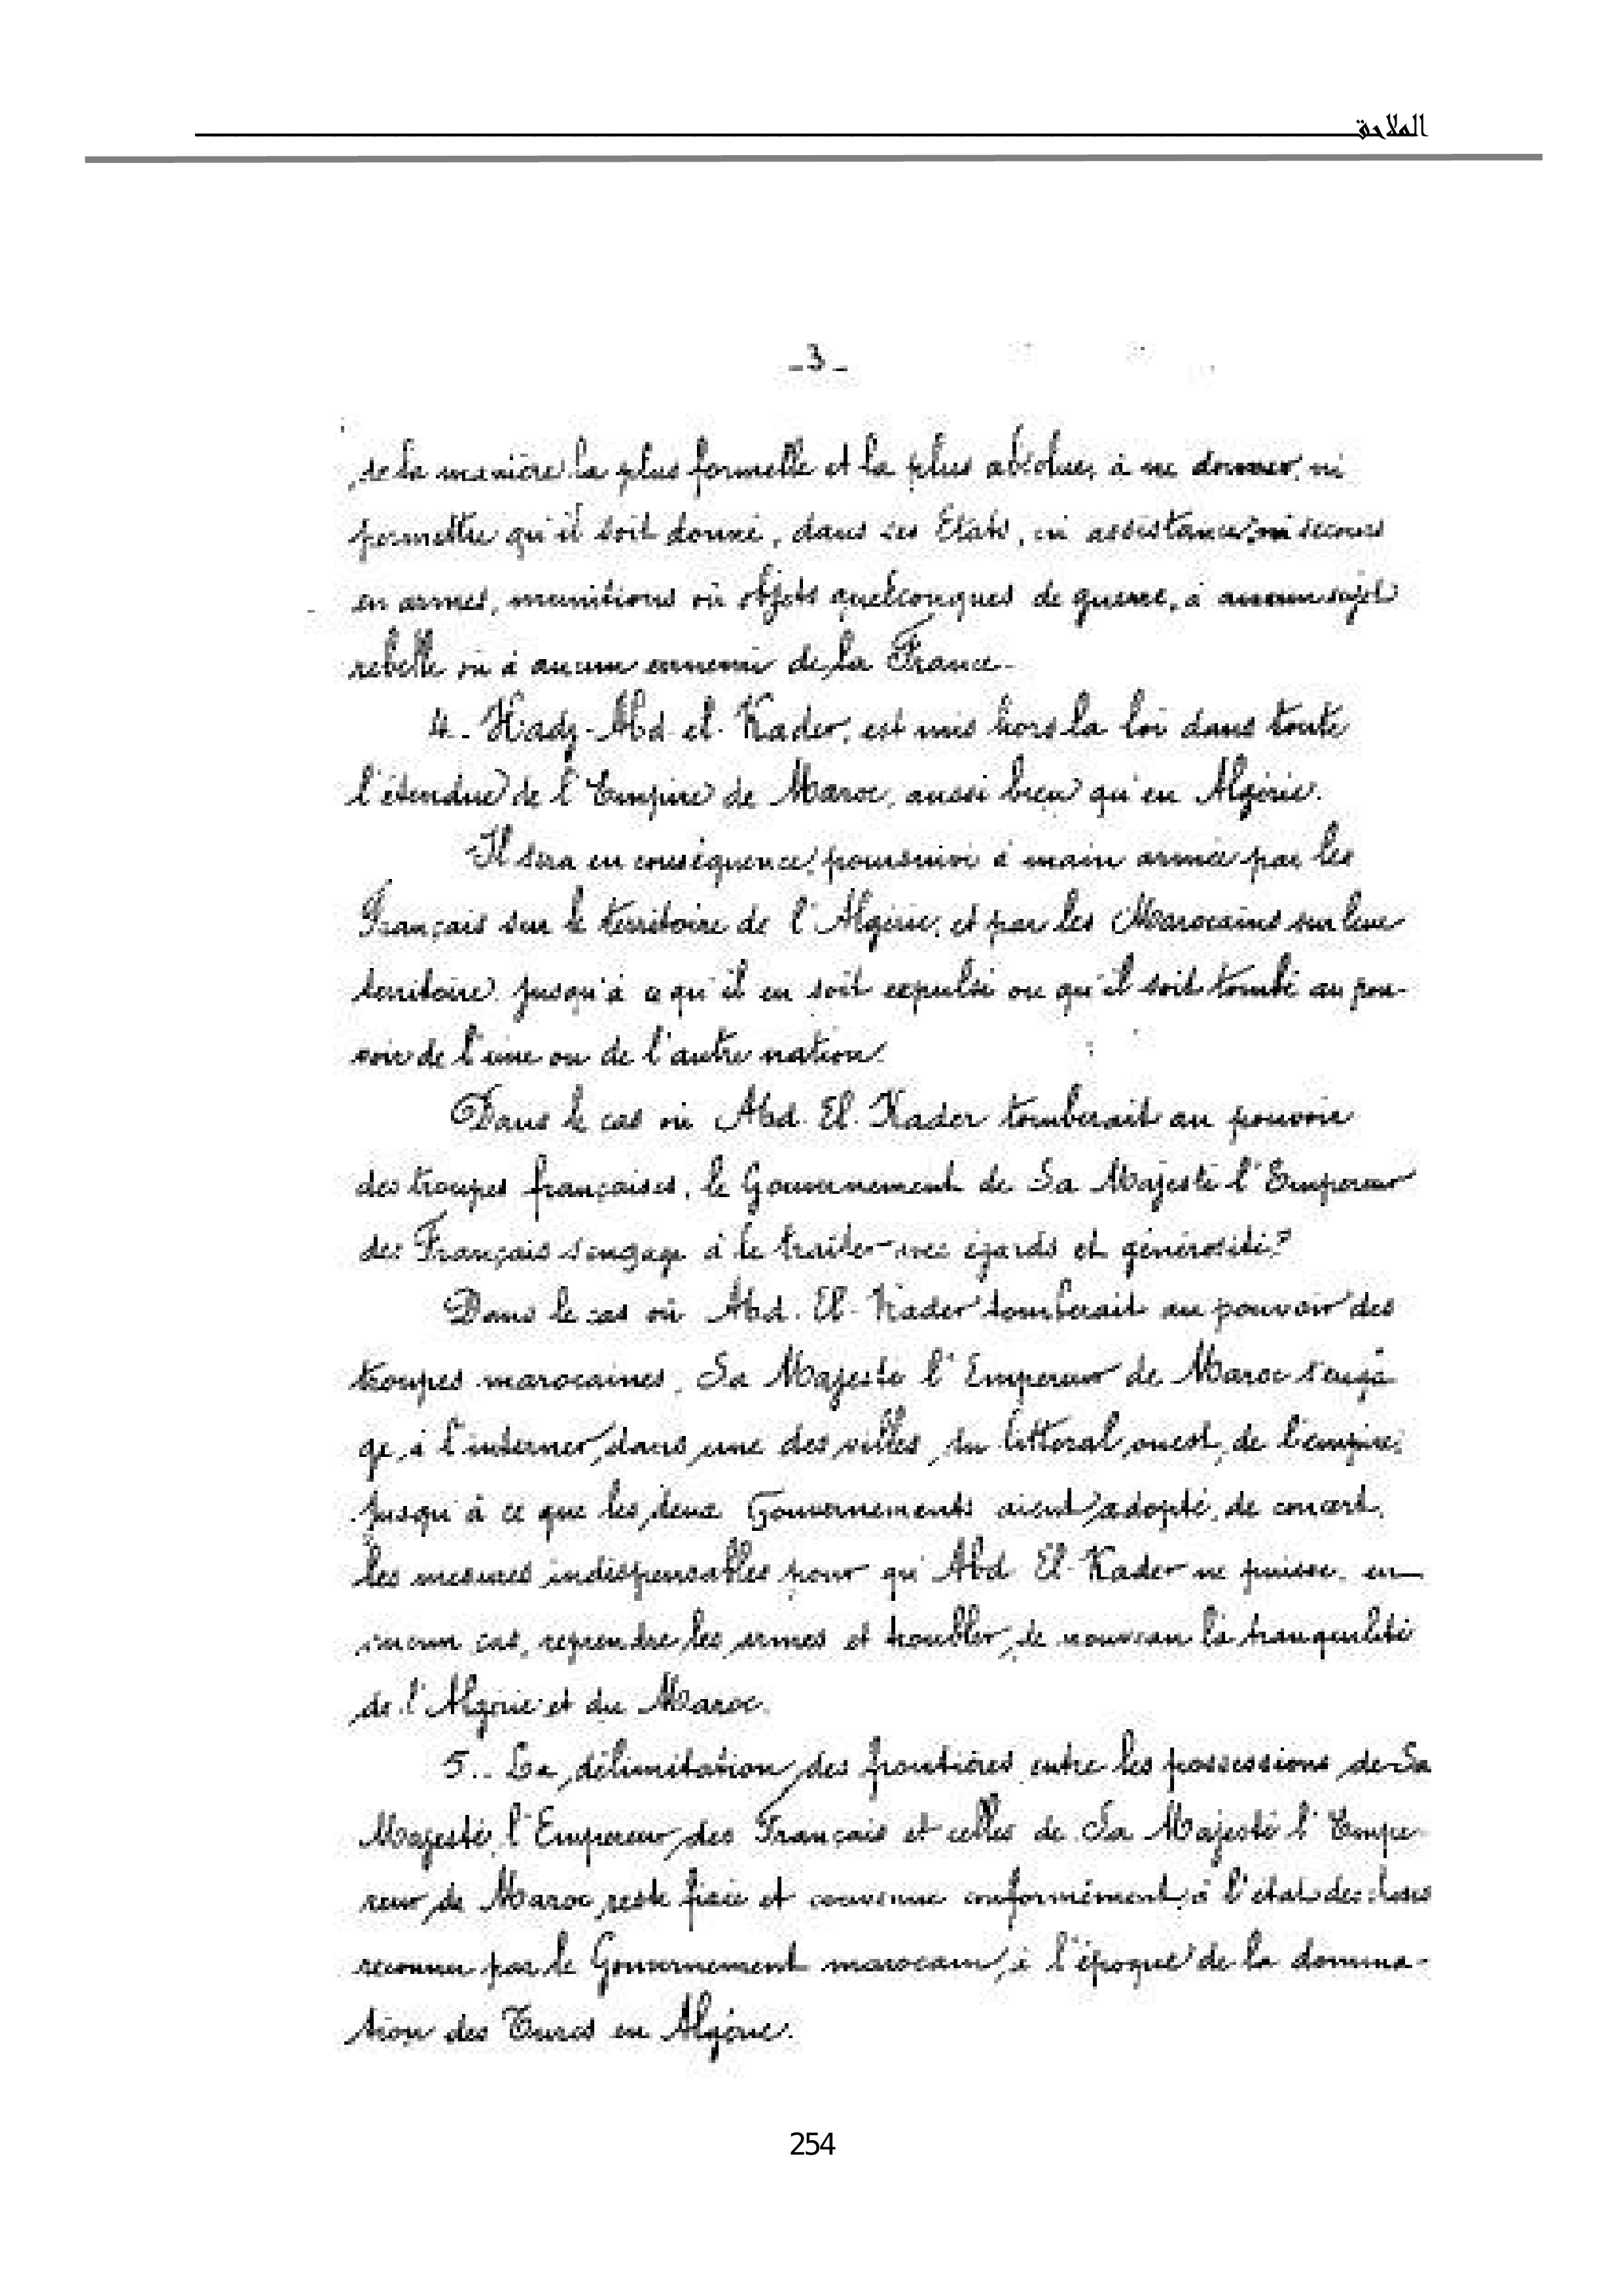 الملاحق
-3-
de la manière la plus formelle et la plus absolue, à ne donner, ni
permettre qu'il soit donné, dans ses Etats, ni assistance, ni secours
en armes, munitions ou objets quelconques de guerre, à aucun sujet
rebelle ou à aucun ennemi de la France.
4.- Hadj-Abd-el-Kader, est mis hors la loi dans toute
l'étendue de l'Empire de Maroc, aussi bien qu'en Algérie.
Il sera en conséquence, poursuivi à main armée par les
Français sur le territoire de l'Algérie, et par les Marocains sur leur
territoire. Jusqu'à ce qu'il en soit expulsé ou qu'il soit tombé au pou-
voir de l'une ou de l'autre nation.
Dans le cas où Abd-El-Kader tomberait au pouvoir
des troupes françaises, le Gouvernement de Sa Majesté l'Empereur
des Français s'engage à le traiter avec égards et générosité.
Dans le cas où Abd-El-Kader tomberait au pouvoir des
troupes marocaines, Sa Majesté l'Empereur de Maroc s'enga
ge, à l'interner, dans une des villes, du littoral ouest, de l'empire,
Jusqu'à ce que les deux Gouvernements aient adopté, de concert,
les mesures indispensables pour qu'Abd-El-Kader ne puisse, en
aucun cas, reprendre les armes et troubler, de nouveau la tranquilité
de l'Algérie et du Maroc.
5.. La délimitation des frontières entre les possessions de Sa
Majesté, l'Empereur des Français et celles de Sa Majesté l'Empe-
reur de Maroc reste fixée et convenue conformément, à l'état des choses
reconnu par le Gouvernement marocain, à l'époque de la domina-
tion des Turcs en Algérie.
254